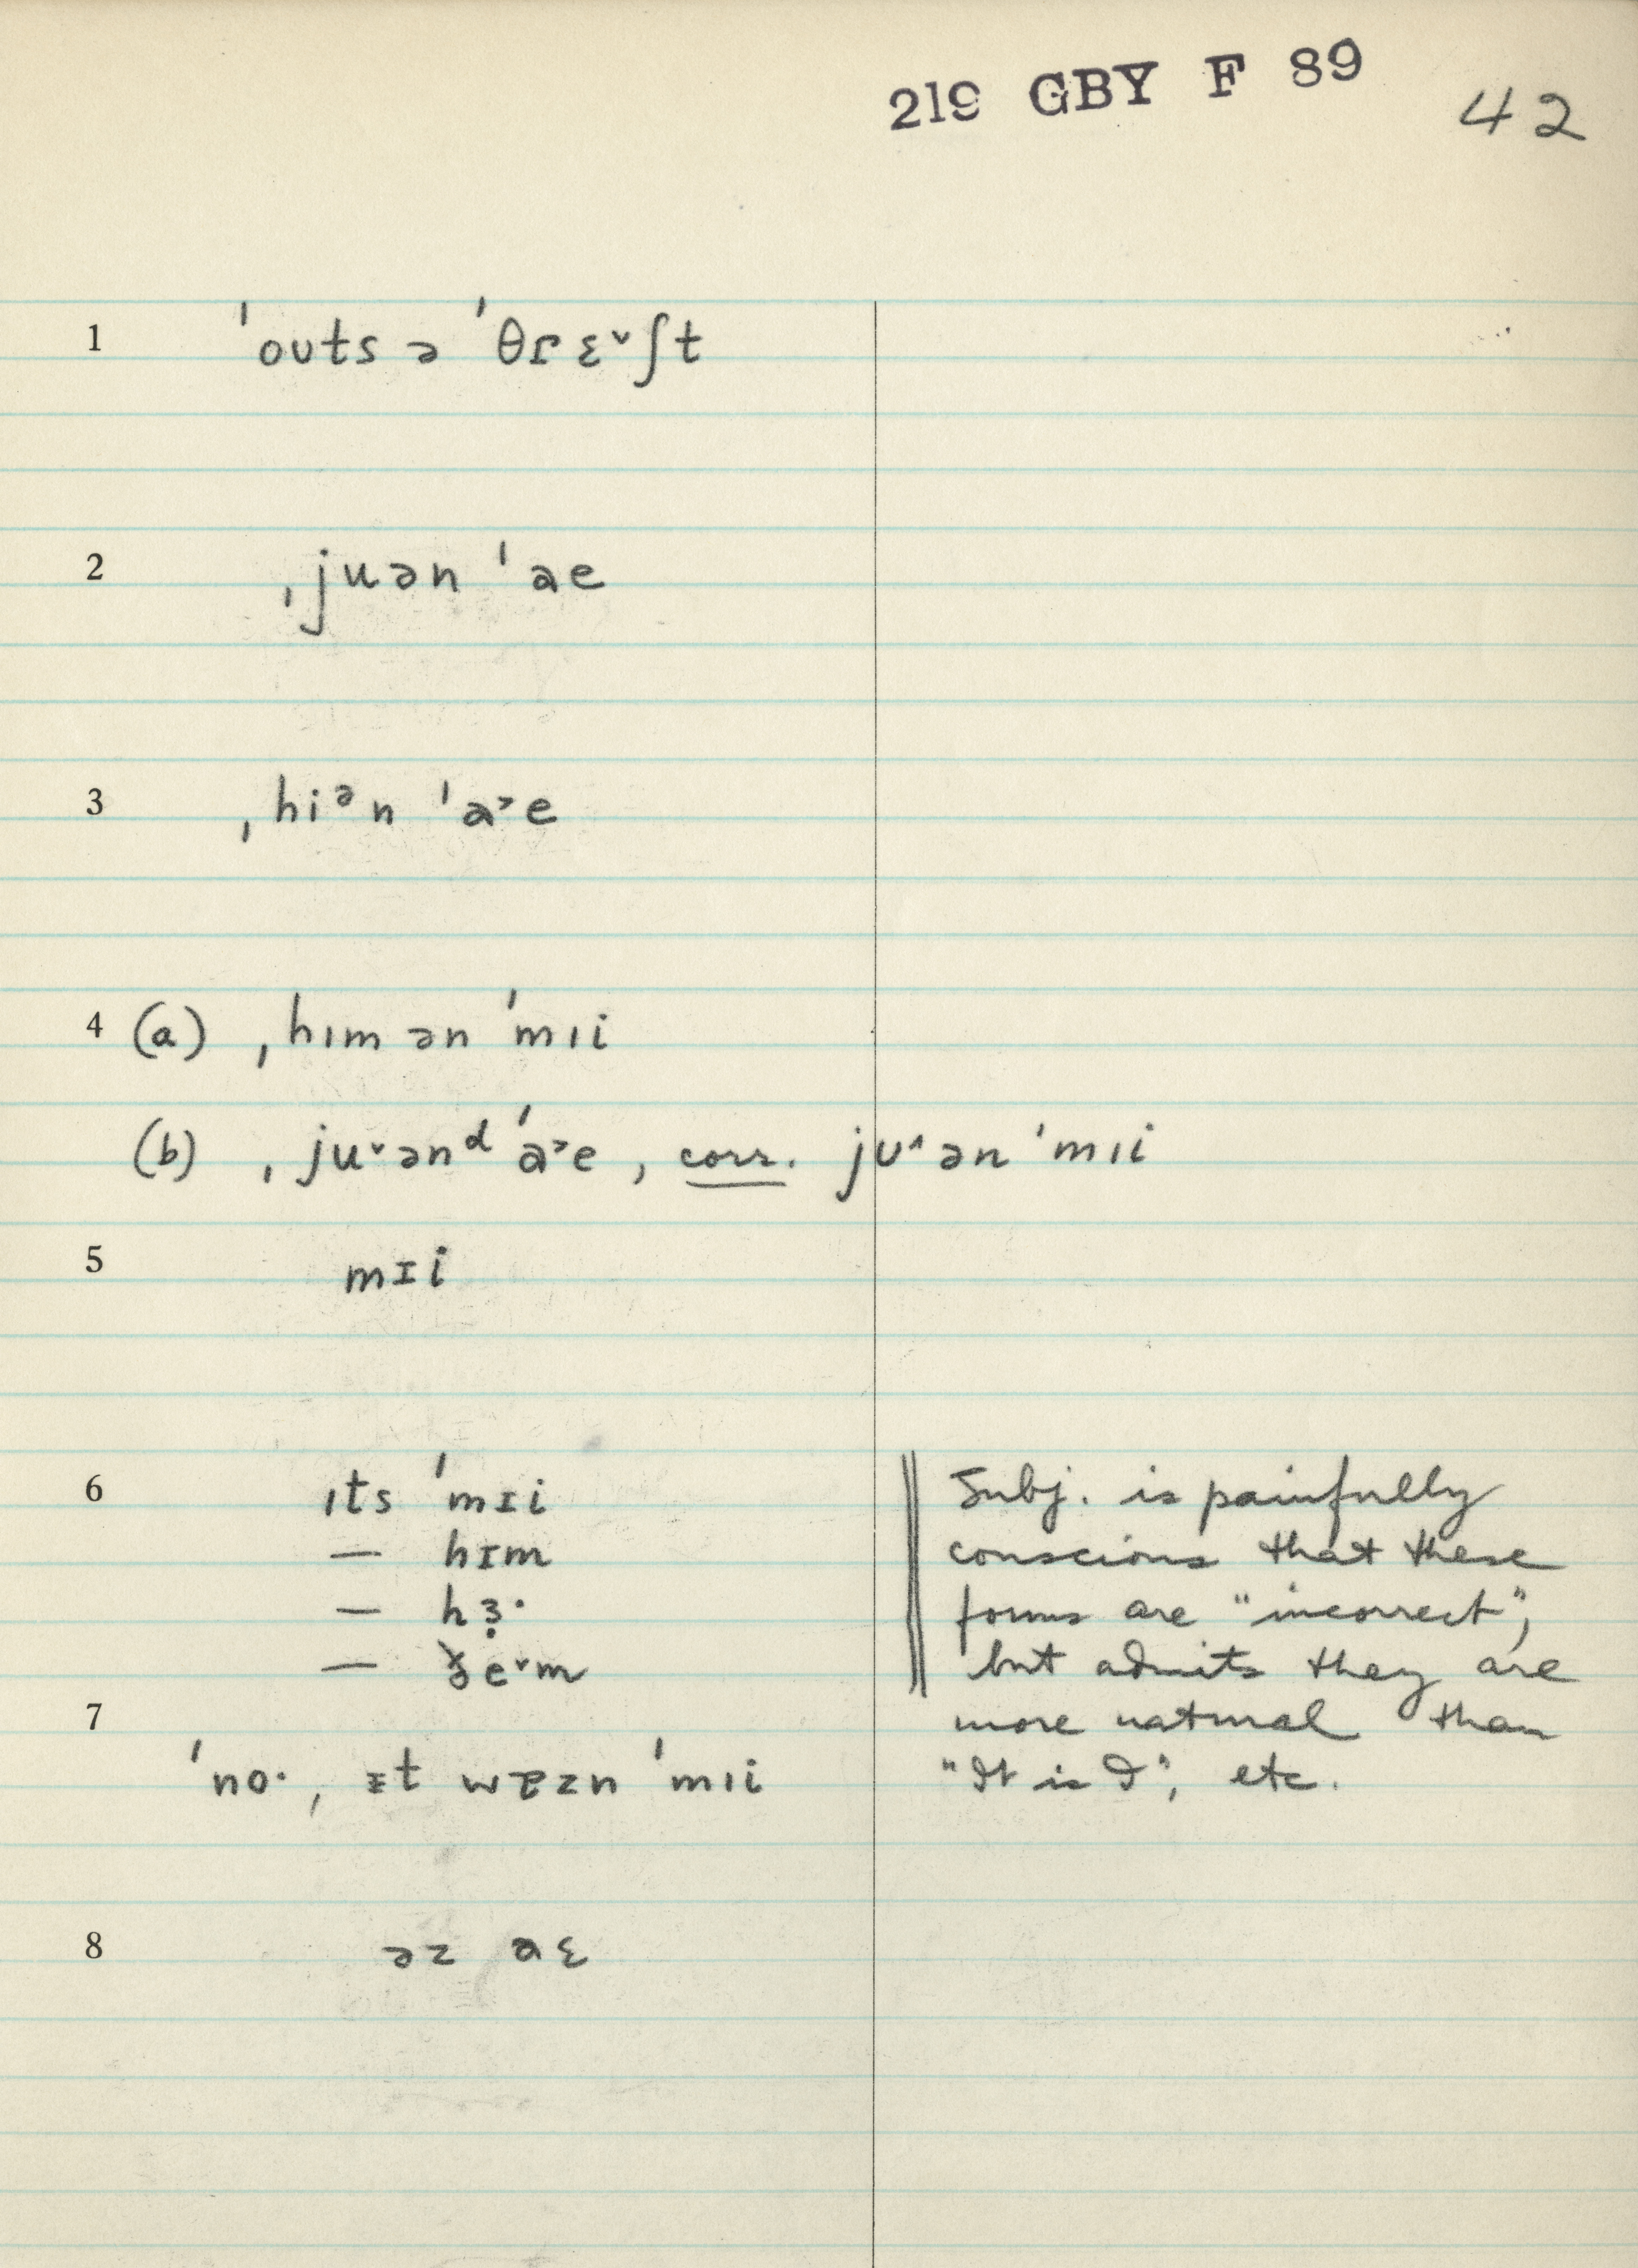 219 GBY F 89 42
1 ˈouts ə ˈθɾɛ˅ʃt
2 ˌjuən ˈae
3 ˌhiᵊn ˈa˃e
4 (a) ˌhɪm ən ˈmɪi
(b) ˌju˅ənᵈ ˈa˃e, corr. jᴜ˄ən ˈmɪi
5 mɪi
6 ɪts ˈmɪi
— hɪm
— hɜ̣·
— e˅m
Subj. is painfully
conscious that these
forms are "incorrect",
but admits they are
more natural than
"It is I", etc.
7
ˈno·, ɪt zn ˈmɪi
8 əz aɛ